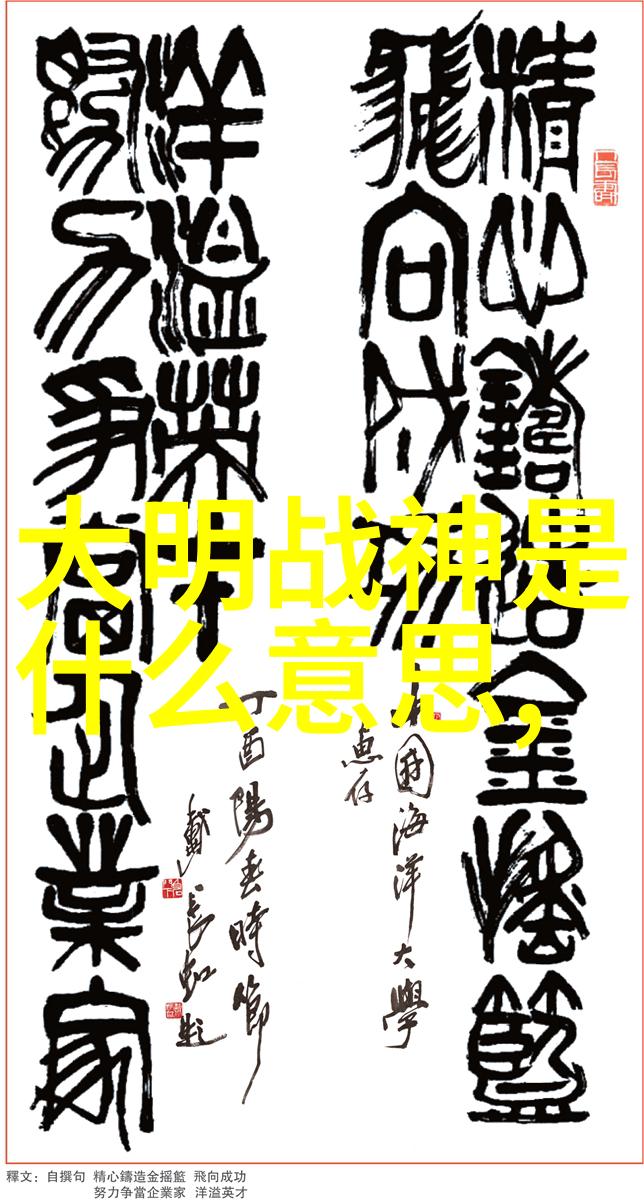 精心鑄造金摇籃
飛向成功
中國海洋大學
惠存
洋溢英才
努力争當企業家
丁酉陽春時節
戴長虹題
大明战神是
什么意思,
釋文:自撰句 精心鑄造金摇籃 飛向成功
努力争當企業家 洋溢英才